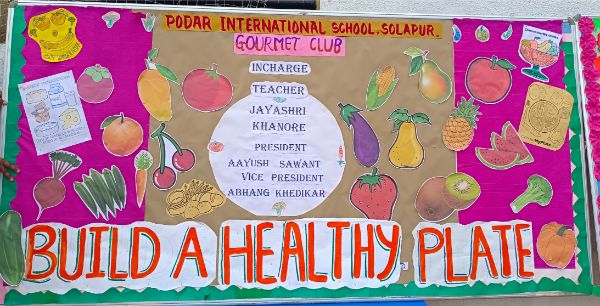 PODAR INTERNATIONAL SCHOOL, SOLAPUR.
GOURMET CLUB
INCHARGE
TEACHER
JAYASHRI
KHANORE
PRESIDENT
AAYUSH SAWANT
VICE PRESIDENT
ABHANG KHEDIKAR
BUILD A HEALTHY PLATE